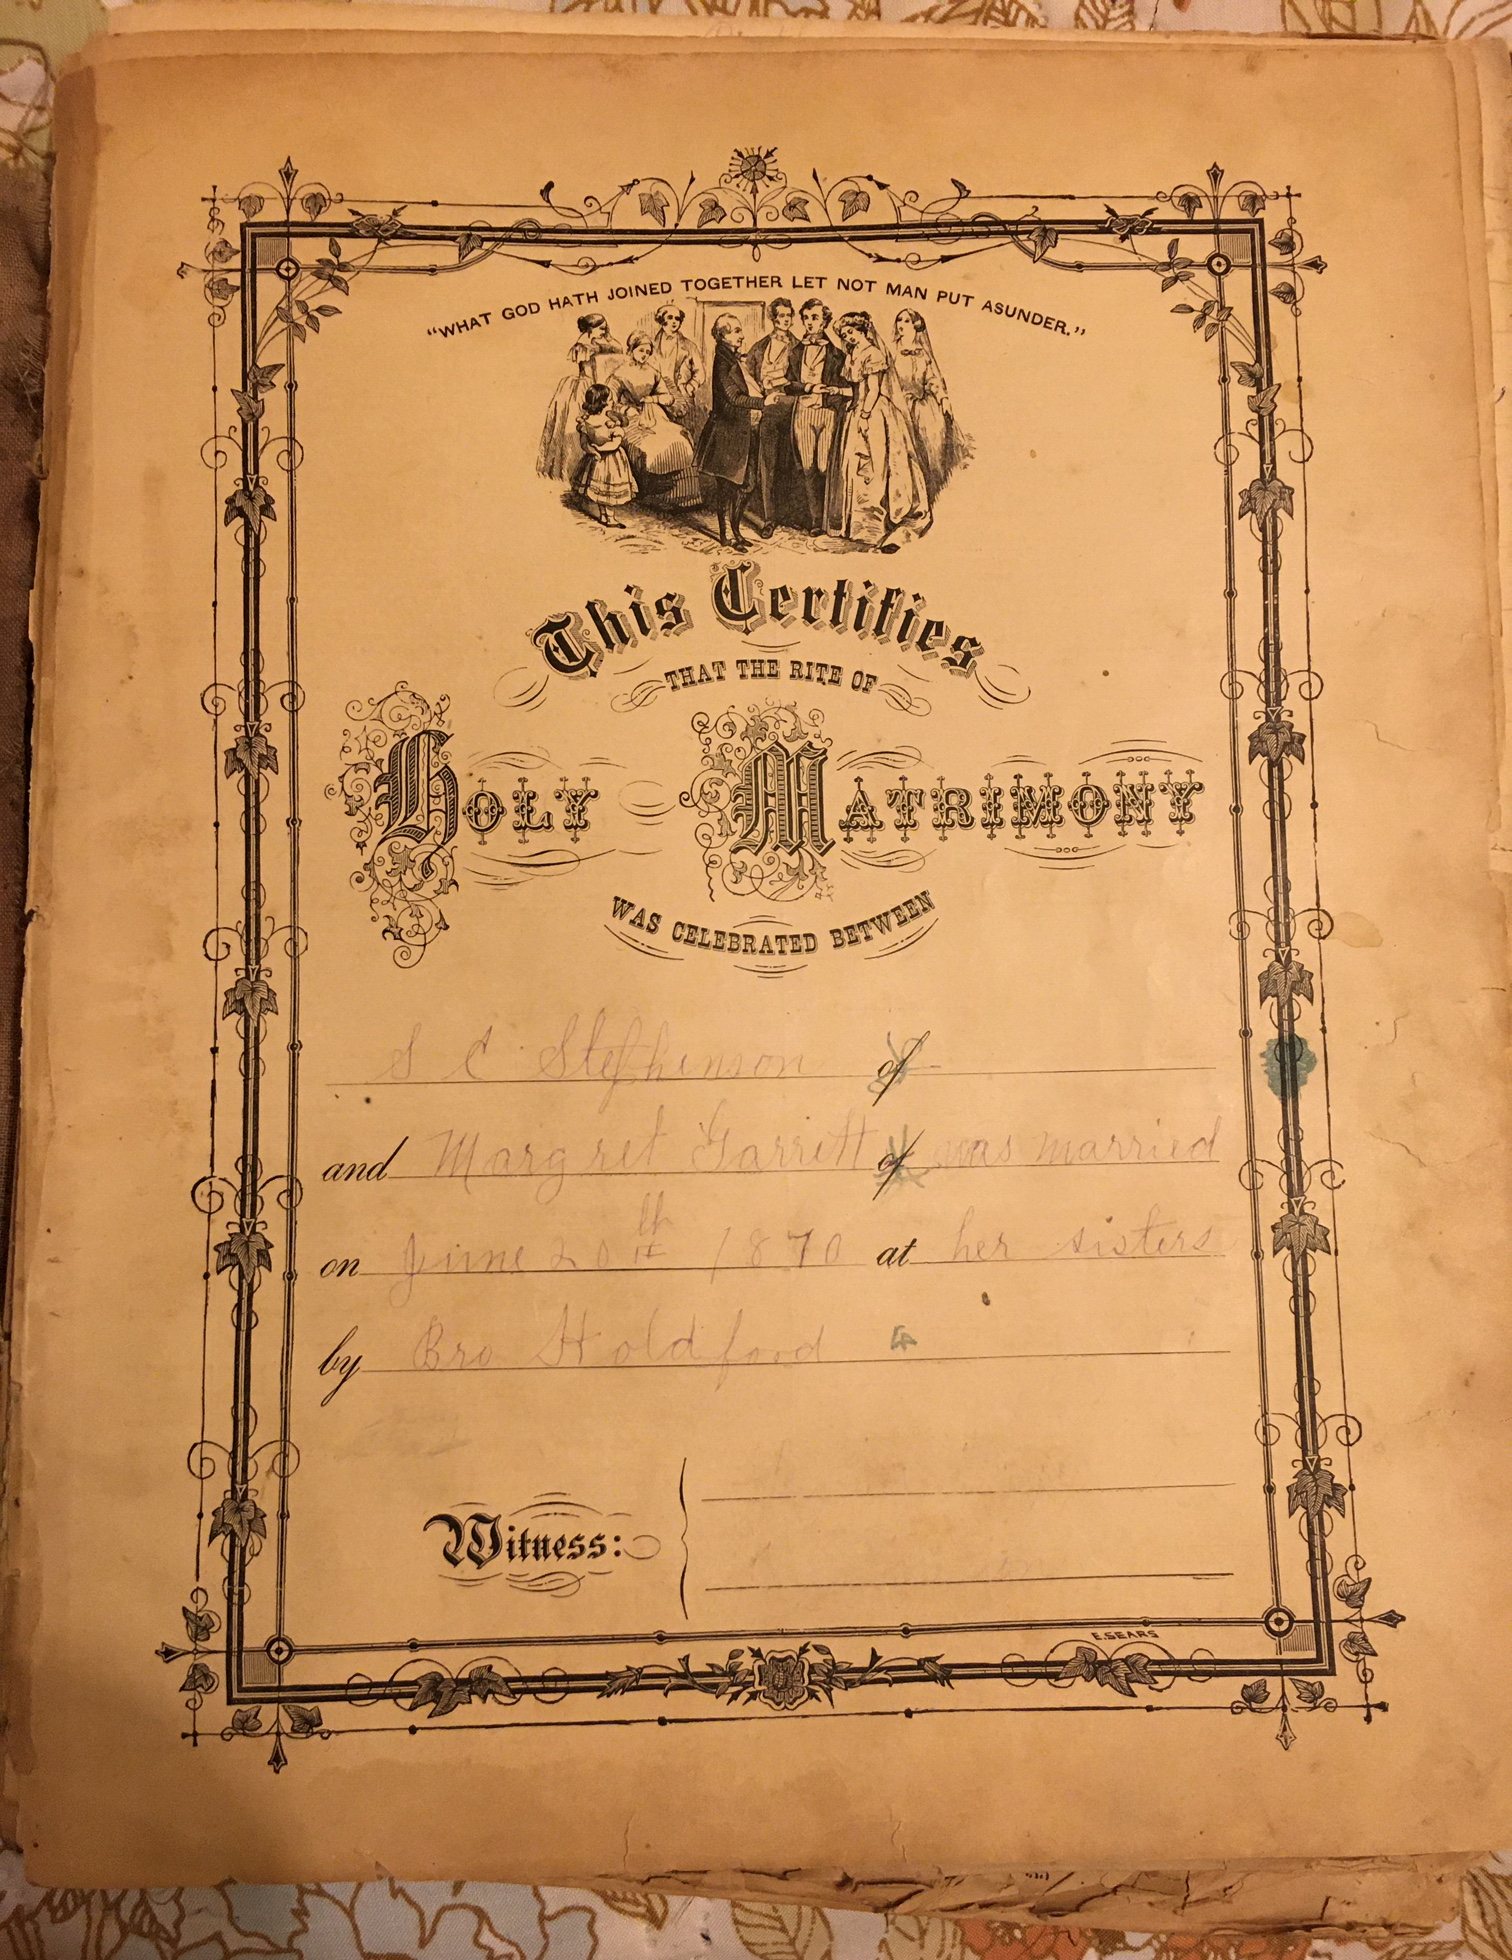 "WHAT GOD HATH JOINED TOGETHER LET NOT MAN PUT ASUNDER."
This Certifies
THAT THE RITE OF
HOLY MATRIMONY
WAS CELEBRATED BETWEEN
S C Stephenson of
and Margret Garrett of was married
on June 20th 1870 at her sisters
by Bro Holdford
Witness:
E.SEARS